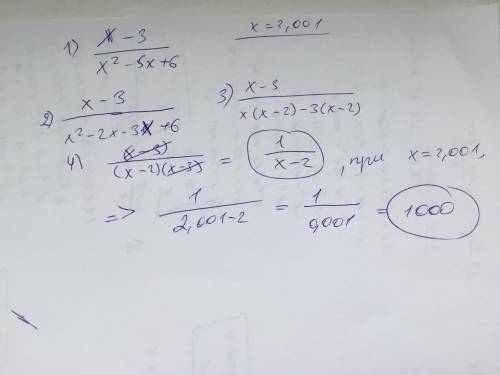 x = 2,001
1) x - 3 / x² - 5x + 6
2) x - 3 / x² - 2x - 3x + 6
3) x - 3 / x(x - 2) - 3(x - 2)
4) (x - 3) / (x - 2)(x - 3) = 1 / x - 2 , при x = 2,001,
=> 1 / 2,001 - 2 = 1 / 0,001 = 1000